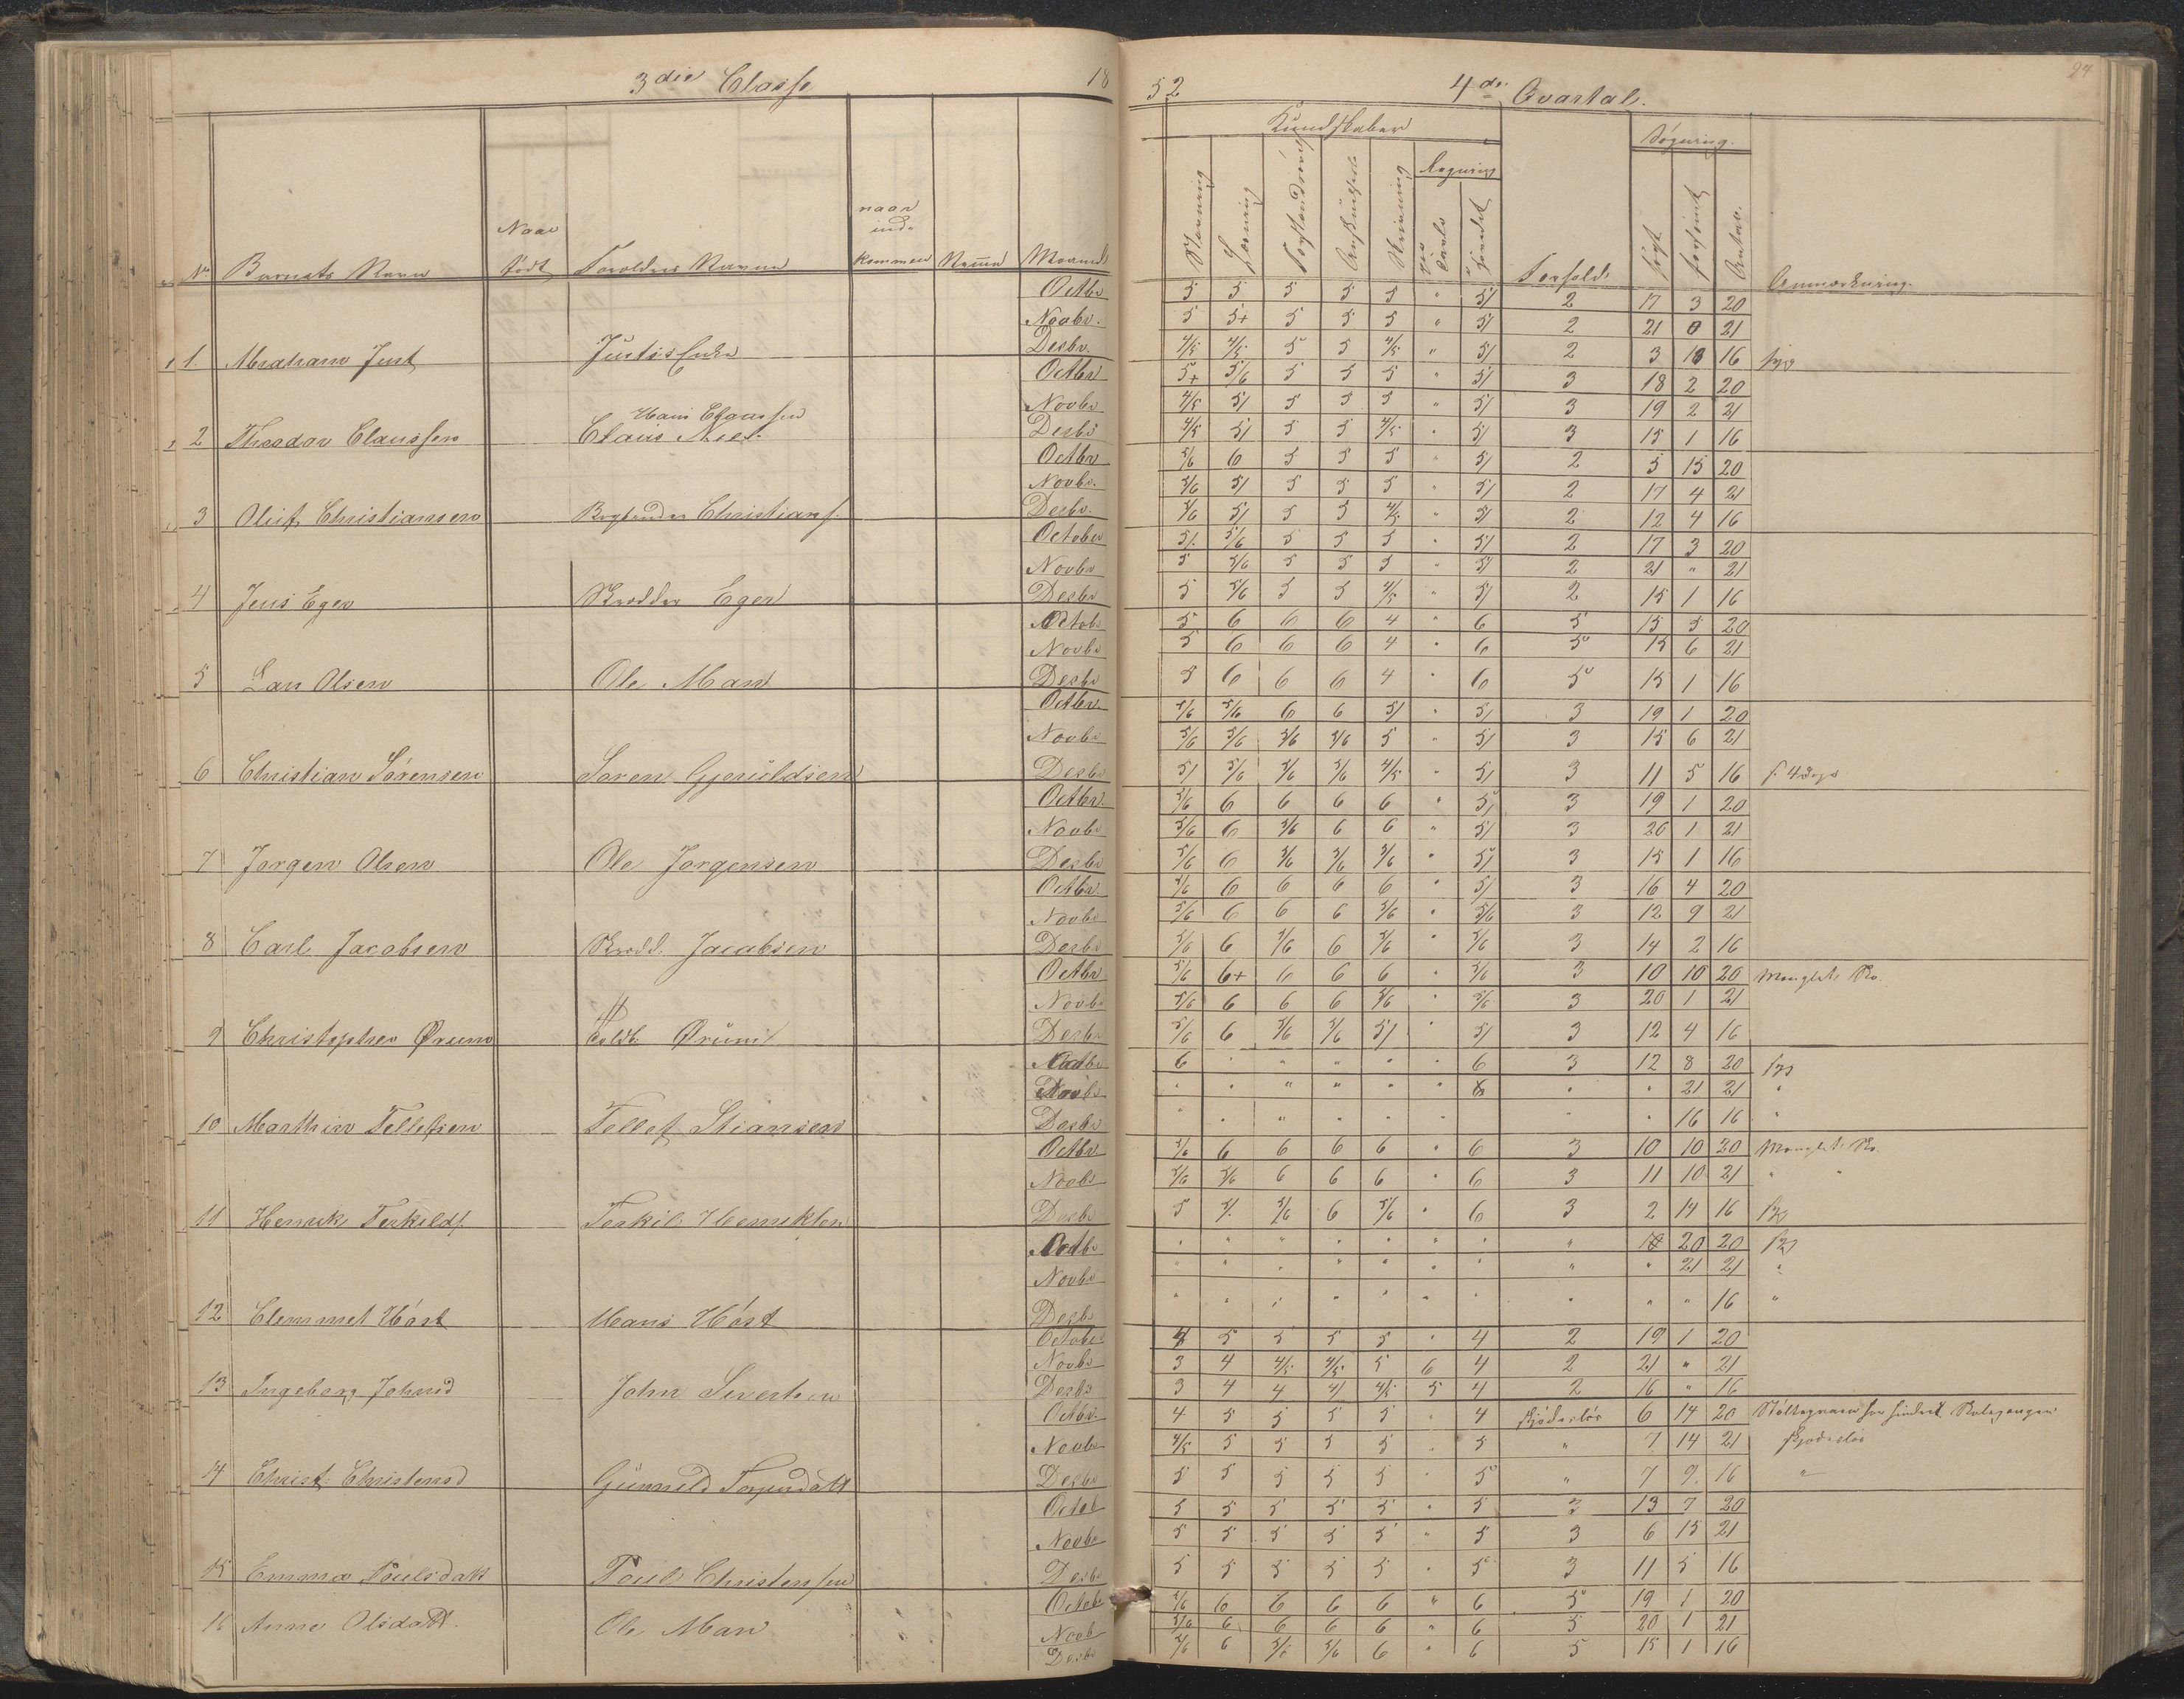 3die Classe 18
52 4de Qvartal.
Kundskaber
Søgning.
Regning
No Barnets Navn Naar født Forældres Navne naar ind- kommen Maaned
Læsning Skrivning Forhold søgt forsømt Antal Anmærkning.
Octbr 5 5 5 5 5 " 5/ 2 17 3 20
Novbr. 5 5+ 5 5 5 " 5/ 2 21 0 21
1. Abraham Just Decbr. 4/5 4/5 5 5 4/5 " 5/ 2 3 13 16 syg
Octbr 5+ 5/6 5 5 5 " 5/ 3 18 2 20
Hans Claussen Novbr 4/5 5/ 5 5 5 " 5/ 3 19 2 21
2 Theodor Claussen Decbr 4/5 5/ 5 5 4/5 " 5/ 3 15 1 16
Octbr 5/6 6 5 5 5 " 5/ 2 5 15 20
Novbr. 5/6 5/ 5 5 5 " 5/ 2 17 4 21
3 Oluf Christiansen Bogbinder Christians. Decbr. 5/6 5/ 5 5 4/5 " 5/ 2 12 4 16
October 5/ 5/6 5 5 5 " 5/ 2 17 3 20
Novbr 5 5/6 5 5 5 " 5/ 2 21 " 21
4 Jens Eger Skrædder Eger Decbr 5 5/6 5 5 4/5 " 5/ 2 15 1 16
Octob 5 6 6 6 4 " 6 5 15 5 20
Novbr 5 6 6 6 4 " 6 5 15 6 21
5 Lars Olsen Ole Man Decbr 5 6 6 6 4 " 6 5 15 1 16
Octbr. 5/6 5/6 6 6 5/ " 5/ 3 19 1 20
Novbr 5/6 5/6 5/6 5/6 5 " 5/ 3 15 6 21
6 Christian Sørensen Soren Gjeruldsen Decbr 5/ 5/6 5/6 5/6 4/5 " 5/ 3 11 5 16 s. 4 Dage
Octbr 5/6 6 6 6 6 " 5/ 3 19 1 20
Novbr 5/6 6 5/6 6 6 " 5/ 3 20 1 21
7 Jørgen Olsen Ole Jørgensen Decbr 5/6 6 5/6 5/6 5/6 " 5/ 3 15 1 16
Octbr. 5/6 6 6 6 6 " 5/ 3 16 4 20
Novbr 5/6 6 6 6 5/6 " 5/6 3 12 9 21
8 Carl Jacobsen Skrædd. Jacobsen Decbr 5/6 6 5/6 6 5/6 " 5/6 3 14 2 16
Octbr 5/6 6+ 6 6 6 " 5/6 3 10 10 20 Manglet Sko.
Novbr 5/6 6 6 6 5/6 " 5/6 3 20 1 21
9 Christopher Ørum Ørum Decbr 5/6 6 5/6 5/6 5/ " 5/ 3 12 4 16
Octbr 6 " " " " " 6 3 12 8 20 syg
Novbr " " " " " " 6 " " 21 21 "
10 Marthin Tellefsen Tellef Stiansen Decbr " " " " " " " " 16 16 "
Octbr 5/6 6 6 6 6 " 6 3 10 10 20 Manglet Sko.
Novbr 5/6 5/6 6 6 6 " 6 3 11 10 21 " "
11 Henrik Terkilds. Terkil Henriksen Decbr 5 5/ 5/6 6 5/6 " 6 3 2 14 16 syg
Octbr " " " " " " " " 20 20 syg
Novbr " " " " " " " " " 21 21 "
12 Clemmet Høst Hans Høst Decbr " " " " " " " " " " 16 "
October 4 5 5 5 5 " 4 2 19 1 20
Novbr 3 4 4/5 4/5 5 6 4 2 21 " 21
13 Ingeborg Johnsd John Sivertsen Decbr 3 4 4 4/ 4/5 5 4 2 16 " 16
Octbr. 4 5 5 5 5 " 4 skjødesløs 6 14 20 hindret Skolegangen
Novbr 4/5 5 5 5 5 " 5 " 7 14 21 skjødesløs
14 Christ. Christensd Gunnild Decbr 5 5 5 5 5 " 5 " 7 9 16 "
Octob 5 5 5 5 5 " 5 3 13 7 20
Novbr 5 5 5 5 5 " 5 3 6 15 21
15 Emma Poulsdatt Poul Christensen Decbr 5 5 5 5 5 " 5 3 11 5 16
Octob 5/6 6 6 6 6 " 6 5 19 1 20
16 Anne Olsdatt. Ole Man Novb 5/6 6 6 6 6 " 6 5 20 1 21
Decbr 5/6 6 5/6 5/6 6 " 6 5 15 1 16